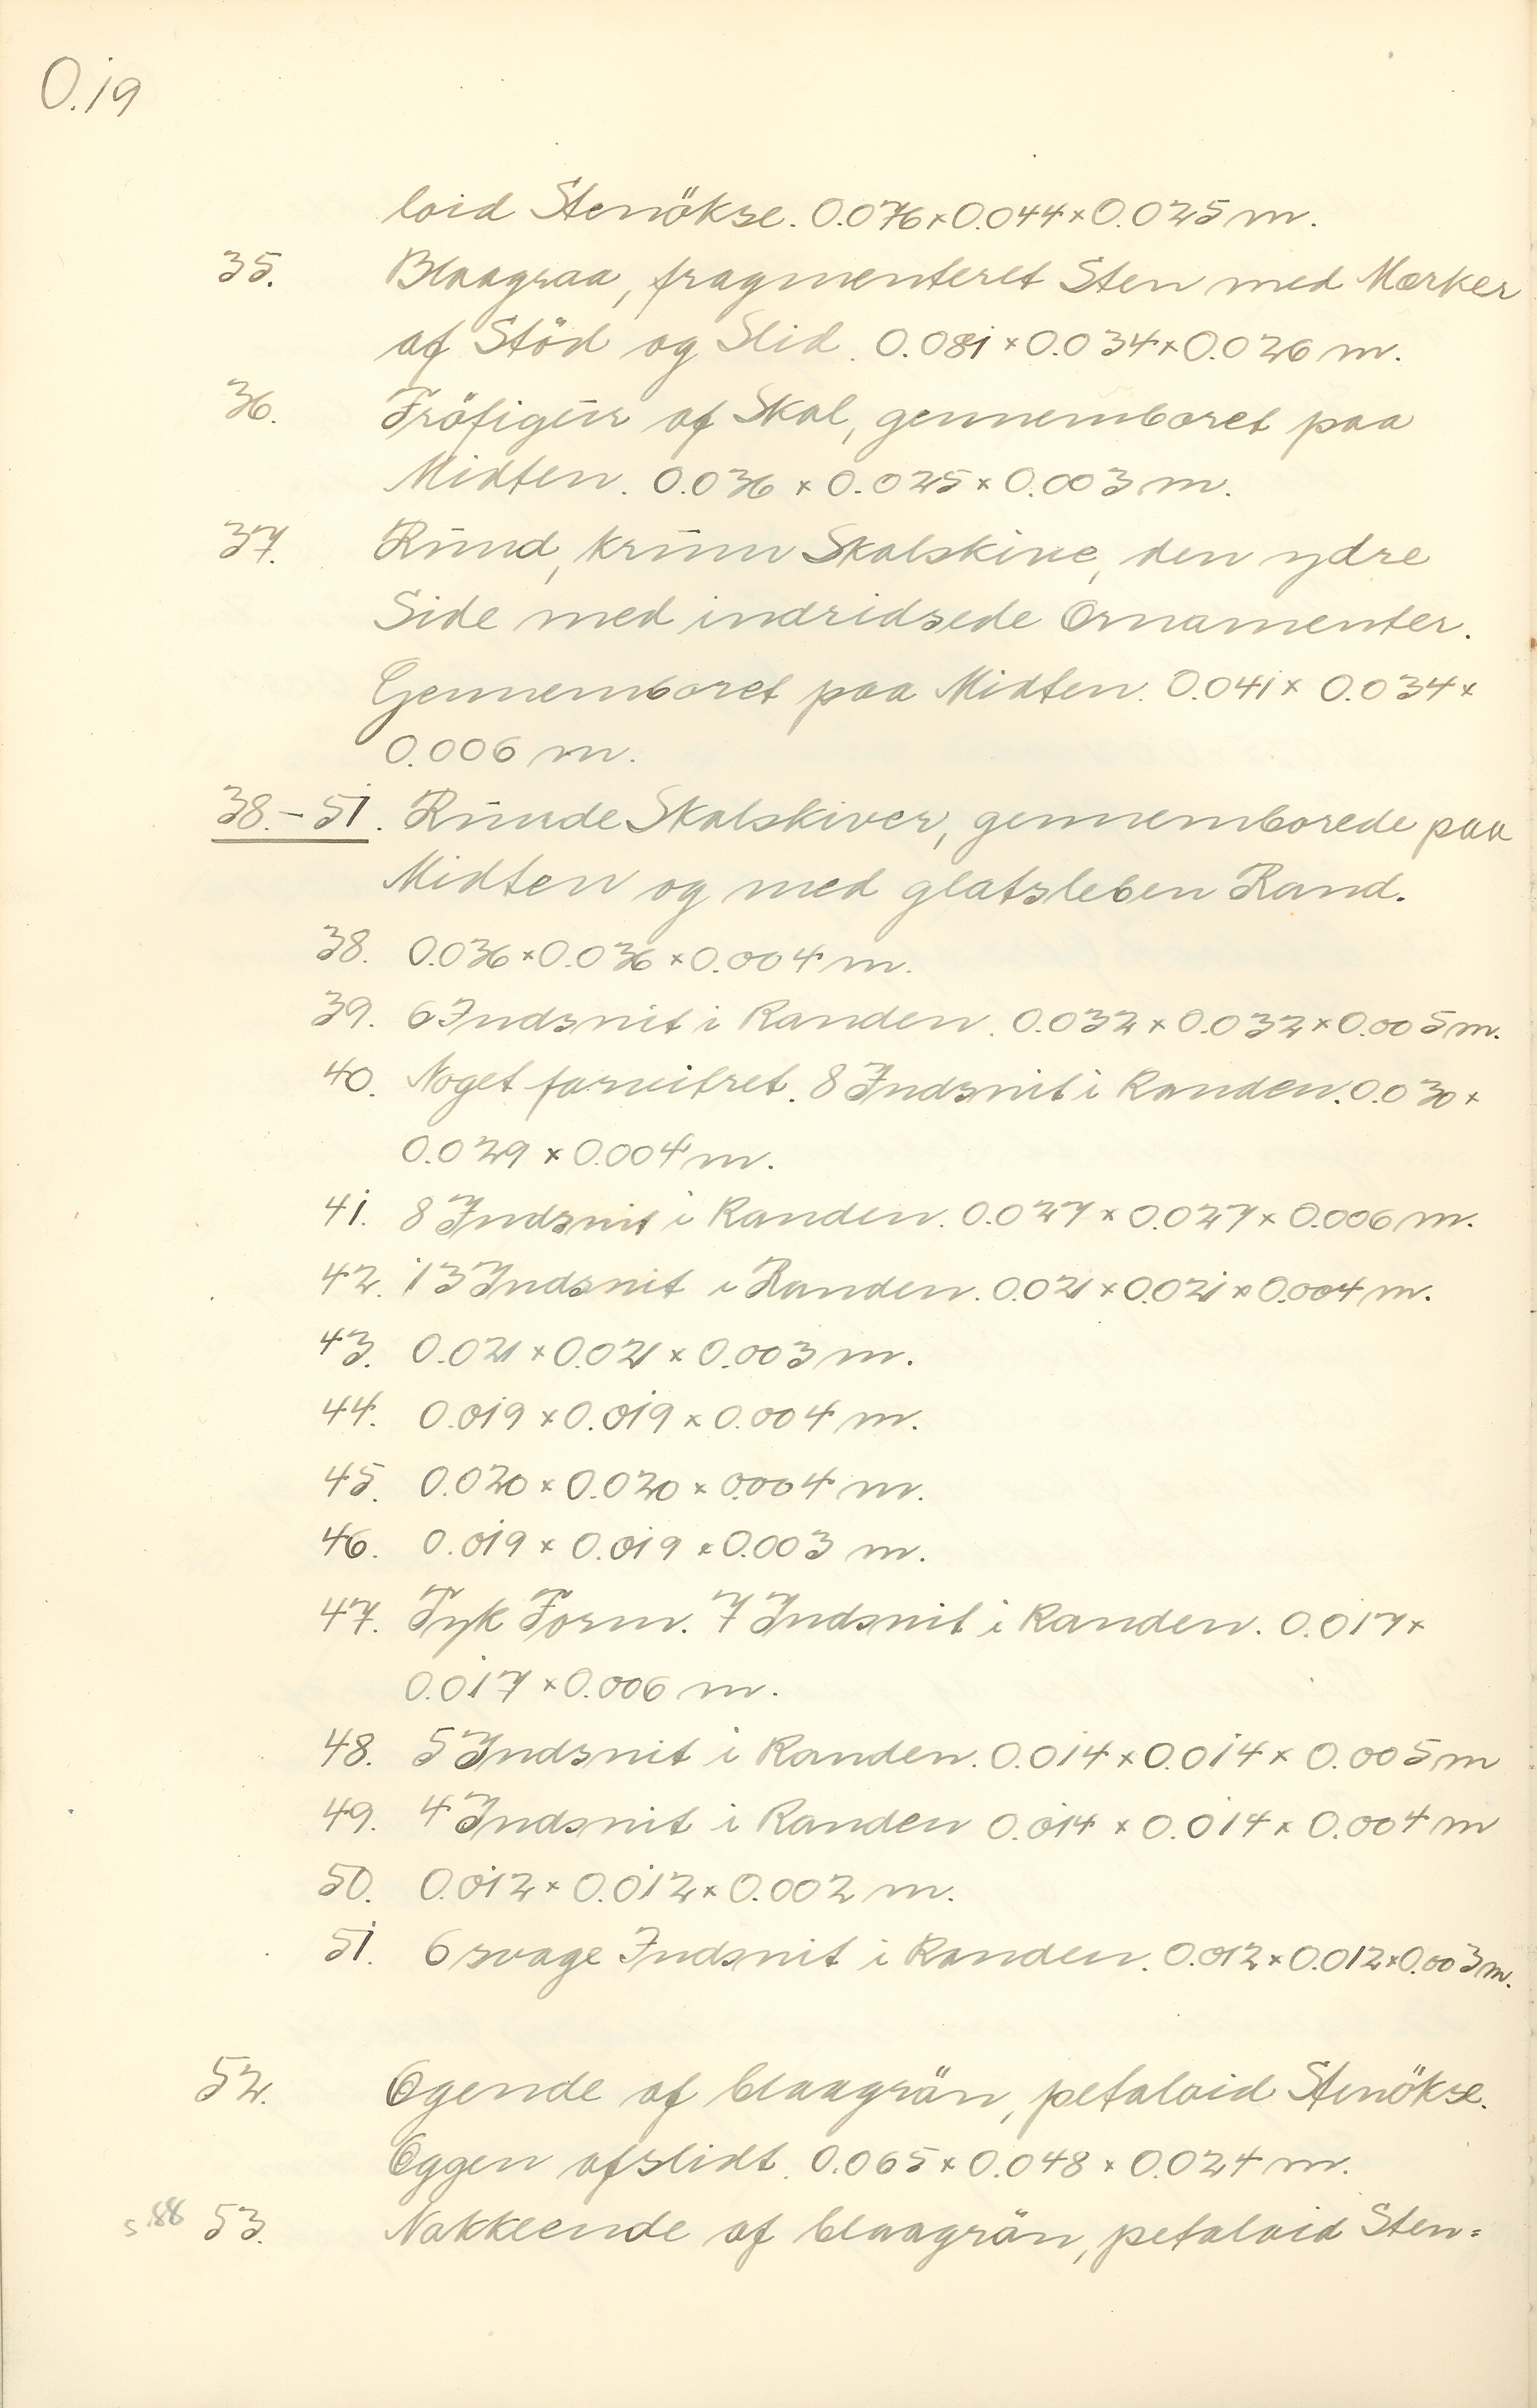 O.19
loid Stenökse. 0.076×0.044×0.025 m.
35. Blaagraa, fragmenteret Sten med Mærker
af Stöd og Slid. 0.081×0.034×0.026 m.
36. Fröfigur af Skal, gennemboret paa
Midten. 0.036×0.025×0.003 m.
37. Rund, krum Skalskive, den ydre
Side med indridsede Ornamenter.
Gennemboret paa Midten. 0.041×0.034×
0.006 m.
38.-51. Runde Skalskiver, gennemborede paa
Midten og med glatsleben Rand.
38. 0.036×0.036×0.004 m.
39. 6 Indsnit i Randen. 0.032×0.032×0.005 m.
40. Noget forvitret. 8 Indsnit i Randen. 0.030×
0.029×0.004 m.
41. 8 Indsnit i Randen. 0.027×0.027×0.006 m.
42. 13 Indsnit i Randen. 0.021×0.021×0.004 m.
43. 0.021×0.021×0.003 m.
44. 0.019×0.019×0.004 m.
45. 0.020×0.020×0.004 m.
46. 0.019×0.019×0.003 m.
47. Tyk Form. 7 Indsnit i Randen. 0.017×
0.017×0.006 m.
48. 5 Indsnit i Randen. 0.014×0.014×0.005 m
49. 4 Indsnit i Randen 0.014×0.014×0.004 m
50. 0.012×0.012×0.002 m.
51. 6 svage Indsnit i Randen. 0.012×0.012×0.003 m.
52. Egende af blaagrön, petaloid Stenökse.
Eggen afslidt. 0.065×0.048×0.024 m.
s.88 53. Nakkeende af blaagrön, petaloid Sten=